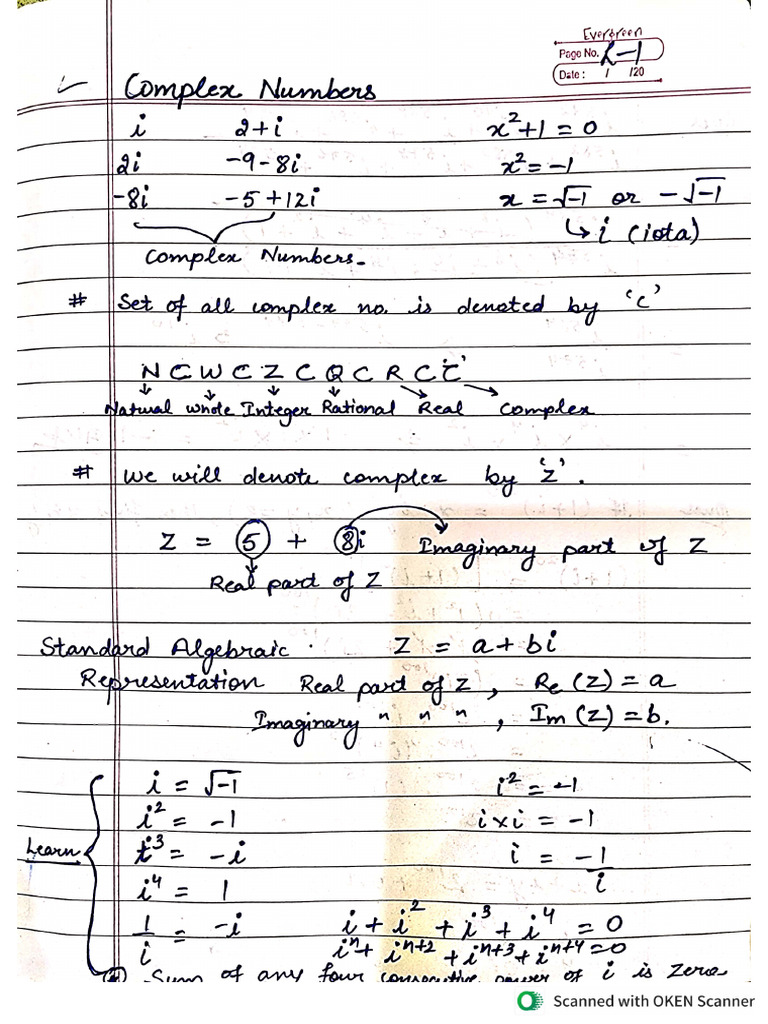 Evergreen
Page No. L-1
Date : / /20
Complex Numbers
i 2+i x²+1 = 0
2i -9-8i x² = -1
-8i -5+12i x = √-1 or -√-1
↳ i (iota)
Complex Numbers.
# Set of all complex no. is denoted by 'C'
N ⊂ W ⊂ Z ⊂ Q ⊂ R ⊂ 'C'
Natural whole Integer Rational Real Complex
# We will denote complex by 'Z'.
Z = 5 + 8i Imaginary part of Z
Real part of Z
Standard Algebraic . Z = a+bi
Representation Real part of Z, Re(Z) = a
Imaginary " " " , Im(Z) = b.
i = √-1 i² = -1
i² = -1 i×i = -1
Learn i³ = -i i = -1/i
i⁴ = 1
1/i = -i i + i² + i³ + i⁴ = 0
iⁿ + iⁿ⁺² + iⁿ⁺³ + iⁿ⁺⁴ = 0
Sum of any four consecutive power of i is zero
Scanned with OKEN Scanner